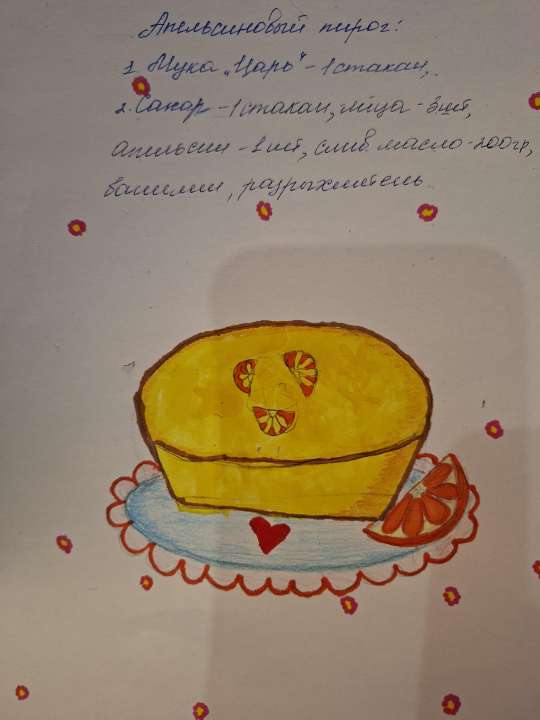 Апельсиновый пирог:
1. Мука „Царь" - 1 стакан,
2. Сахар - 1 стакан, яйца - 3 шт,
апельсин - 1 шт, слив. масло - 200 гр,
ванилин, разрыхлитель.